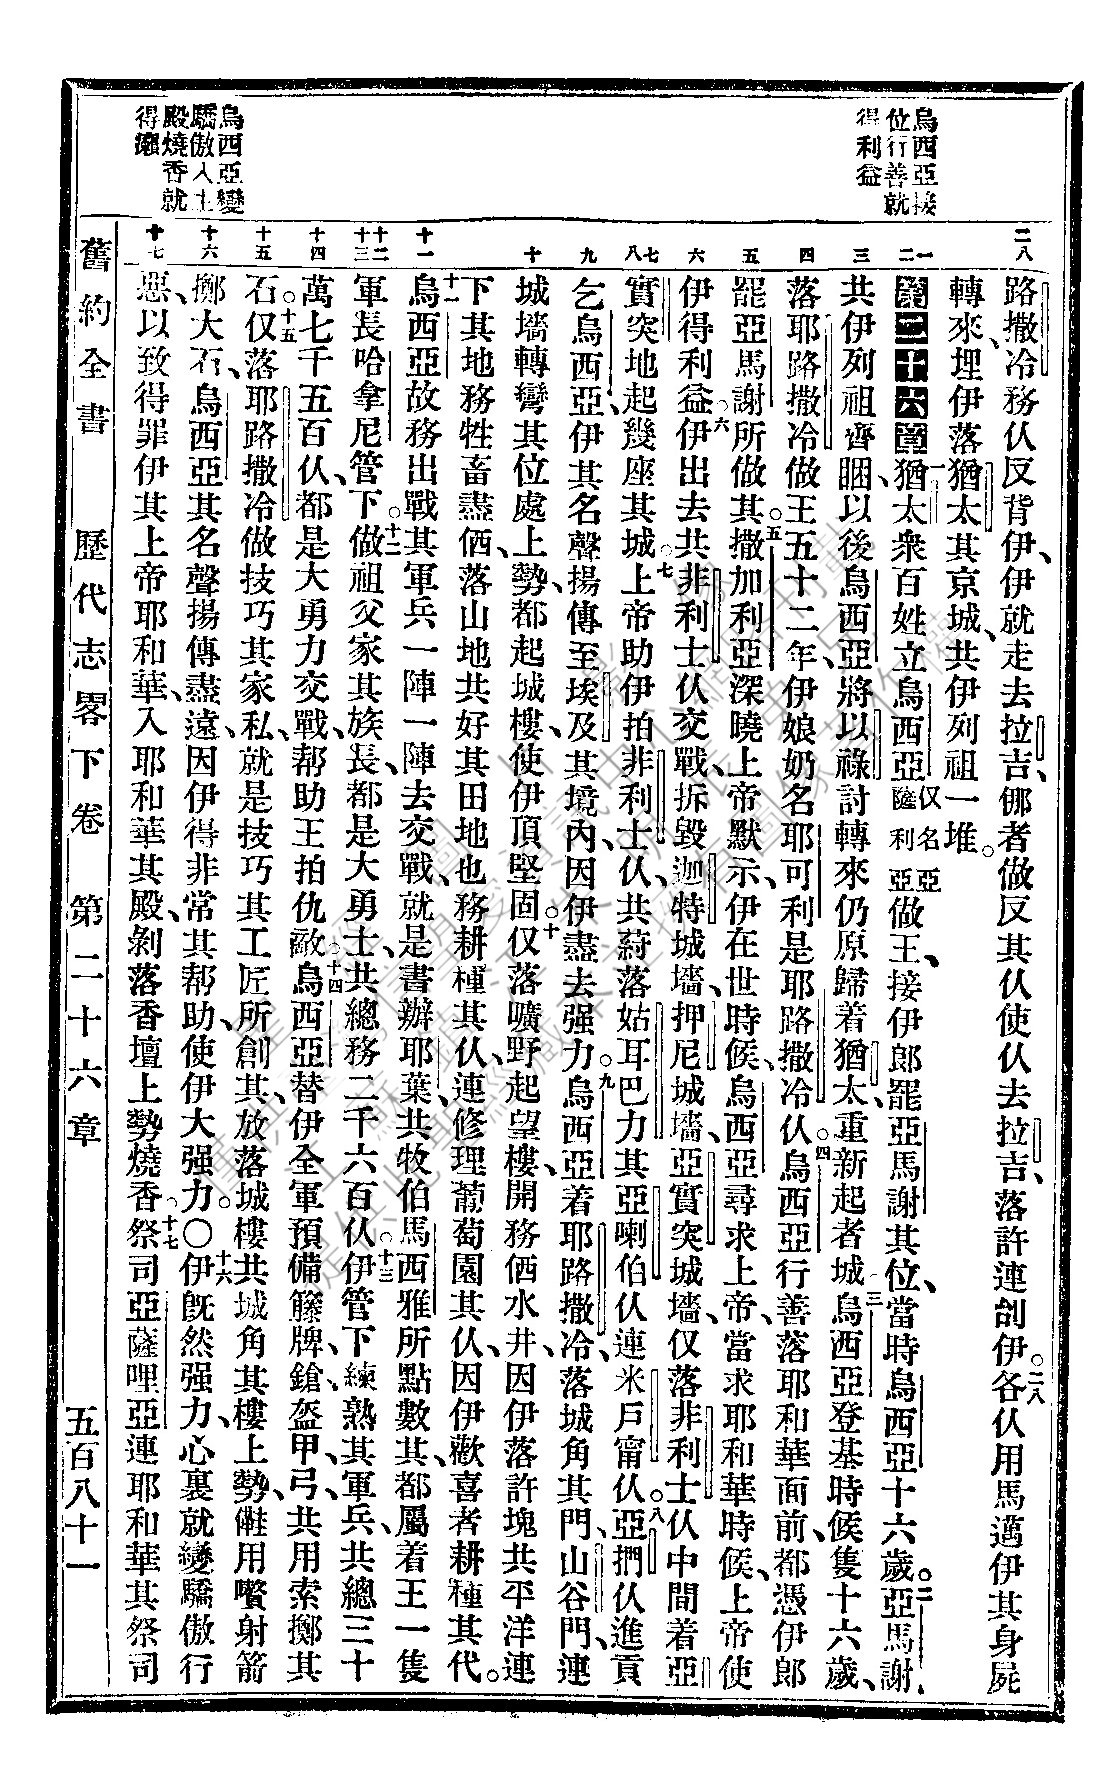 烏西亞接
位行善就
得利益
烏西亞變
驕傲入主
殿燒香就
得癩
二八
一
二
三
四
五
六
七
八
九
十
十一
十二
十三
十四
十五
十六
十七
路撒冷務仫反背伊、伊就走去拉吉、哪者做反其仫使仫去拉吉、落許連刣伊。二八各仫用馬邁伊其身屍
轉來、埋伊落猶太其京城、共伊列祖一堆。
第二十六章 一猶太衆百姓立烏西亞仅名亞薩利亞做王、接伊郎罷亞馬謝其位、當時烏西亞十六歲。二亞馬謝
共伊列祖齊睏、以後烏西亞將以祿討轉來仍原歸着猶太、重新起者城。三烏西亞登基時候隻十六歲、
落耶路撒冷做王五十二年、伊娘奶名耶可利是耶路撒冷仫。四烏西亞行善落耶和華面前、都憑伊郎
罷亞馬謝所做其。五撒加利亞深曉上帝默示、伊在世時候、烏西亞尋求上帝、當求耶和華時候、上帝使
伊得利益。六伊出去共非利士仫交戰、拆毀迦特城墻、押尼城墻、亞實突城墻、仅落非利士仫中間着亞
實突地起幾座其城。七上帝助伊拍非利士仫、共蒞落姑耳巴力其亞喇伯仫連米戶甯仫。八亞捫仫進貢
乞烏西亞、伊其名聲揚傳至埃及其境內、因伊盡去强力。九烏西亞着耶路撒冷、落城角其門、山谷門、連
城墻轉彎其位處上勢、都起城樓、使伊頂堅固。十仅落曠野起望樓、開務価水井、因伊落許塊共平洋連
下其地務牲畜盡価、落山地共好其田地也務耕種其仫、連修理葡萄園其仫、因伊歡喜者耕種其代。
十一烏西亞故務出戰其軍兵一陣一陣去交戰、就是書辦耶葉共牧伯馬西雅所點數其、都屬着王一隻
軍長哈拿尼管下。十二做祖父家其族長、都是大勇士、共總務二千六百仫。十三伊管下練熟其軍兵、共總三十
萬七千五百仫、都是大勇力交戰、帮助王拍仇敵。十四烏西亞替伊全軍預備籐牌、鎗、盔、甲、弓、共用索擲其
石。十五仅落耶路撒冷做技巧其家私、就是技巧其工匠所創其、放落城樓共城角其樓上勢、儺用嘴射箭
擲大石、烏西亞其名聲揚傳盡遠、因伊得非常其帮助、使伊大强力。〇十六伊旣然强力、心裏就變驕傲行
惡、以致得罪伊其上帝耶和華、入耶和華其殿、剝落香壇上勢燒香。十七祭司亞薩哩亞連耶和華其祭司
舊約全書 歷代志畧下卷 第二十六章 五百八十一